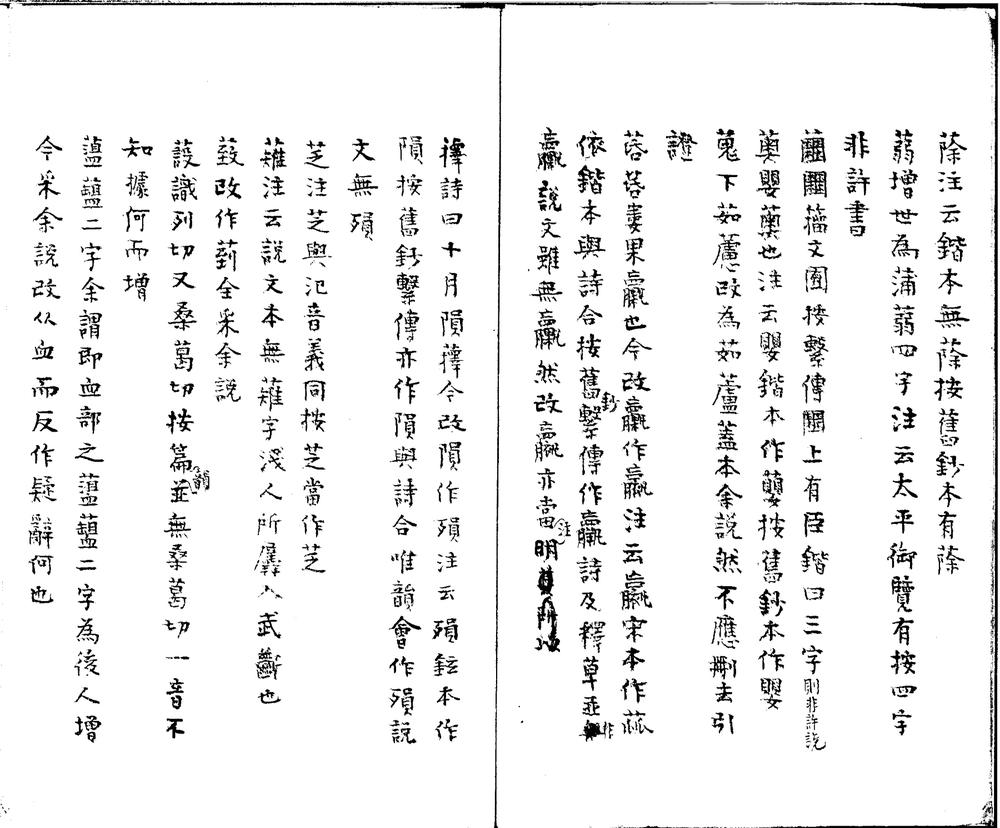 蒢注云鍇本無蒢按舊鈔本有蒢
蒻增世為蒲蒻四字注云太平御覽有按四字
非許書
䕾䕾籒文囿按繫傳䕾上有臣鍇曰三字則非許說
薁嬰薁也注云嬰鍇本作蘡按舊鈔本作嬰
蒐下茹藘改為茹蘆蓋本余說然不應刪去引
證
苦苦蔞果蠃也今改蠃作蠃注云蠃宋本作苽
依鍇本與詩合按舊鈔繫傳作蠃詩及釋草並非
蠃說文雖無蠃然改蠃亦當注明
蘀詩曰十月隕蘀今改隕作殞注云殞鉉本作
隕按舊鈔繫傳亦作隕與詩合唯韻會作殞說
文無殞
芝注芝與氾音義同按芝當作芝
蕹注云說文本無蕹字淺人所羼入武斷也
蔱改作䓭全采余說
蔎識列切又桑葛切按篇韻並無桑葛切一音不
知據何而增
薀蘊二字余謂即血部之薀蘊二字為後人增
今采余說改从血而反作疑辭何也